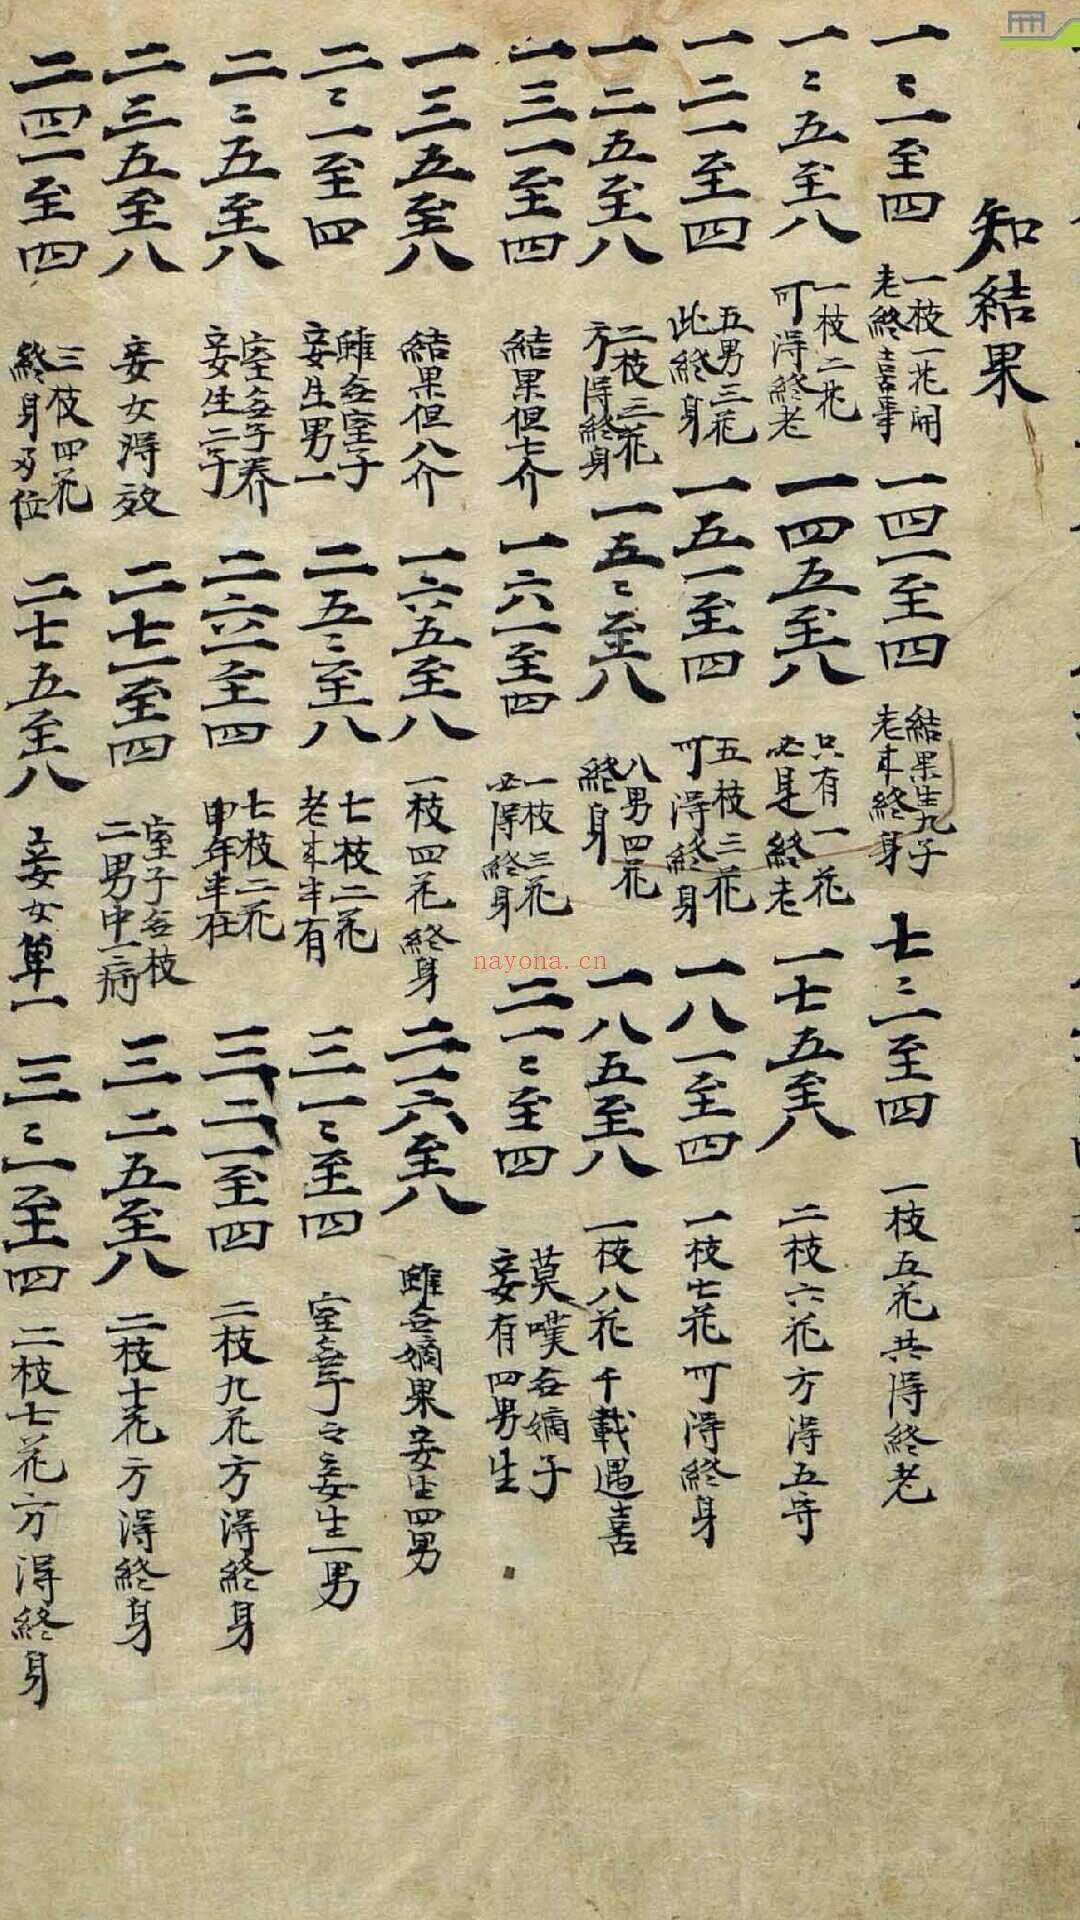 知結果
一〻一至四 一枝一花開 老終喜事 一四一至四 結果生九子 老來終身 七〻一至四 一枝五花共得終老
一〻五至八 一枝二花 可得終老 一四五至八 只有一花 必是終老 一七五至八 二枝六花方得五守
一二一至四 五男三花 此終身 一五一至四 五枝三花 可得終身 一八一至四 一枝七花可得終身
一二五至八 二枝三花 方得終身 一五〻至八 八男四花 終身 一八五至八 一枝八花千載遇喜
一三一至四 結果但七介 一六一至四 一枝三花 必得終身 二一〻至四 莫嘆无嫡子 妾有四男生
一三五至八 結果但八介 一六五至八 一枝四花終身 二一六至八 雖无嫡果妾生四男
二〻一至四 雖无室子 妾生男一 二五〻至八 七枝二花 老來半有 三一〻至四 室無子之妾生一男
二〻五至八 室無子養 妾生二子 二六一至四 七枝二花 申年半在 三二一至四 二枝九花方得終身
二三五至八 妾女得效 二七一至四 室子无枝 二男中一病 三二五至八 二枝十花方得終身
二四一至四 三枝四花 終身 位 二七五至八 妾女單一 三〻一至四 二枝七花方得終身
nayona.cn